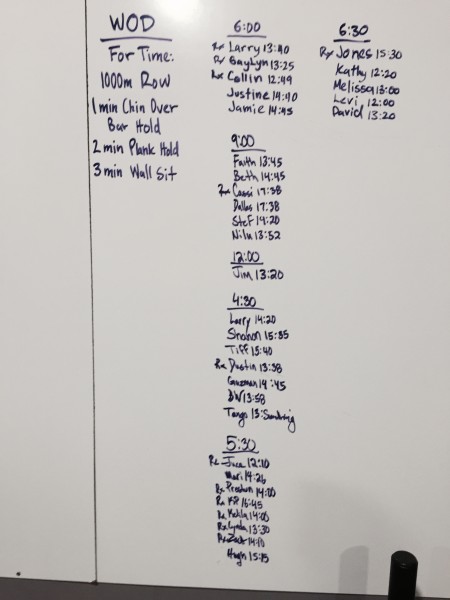 WOD
For Time:
1000m Row
1 min Chin Over
Bar Hold
2 min Plank Hold
3 min Wall Sit
6:00
Rx Larry 13:40
Rx Gaylyn 13:25
Rx Collin 12:49
Justine 14:40
Jamie 14:45
9:00
Faith 13:45
Beth 14:45
Rx Cassi 17:38
Dallas 17:38
Stef 14:20
Nilu 13:52
12:00
Jim 13:20
4:30
Larry 14:20
15:35
Tiff 15:40
Rx Dustin 13:38
Guzman 14:45
13:58
Tango 13:
5:30
Rx 12:10
Mari 14:26
Rx Preston 14:00
Rx 15:45
Rx 14:00
Rx Lynda 13:30
Rx Zack 14:10
Hugh 15:15
6:30
Rx Jones 15:30
Kathy 12:20
Melissa 13:00
Levi 12:00
David 13:20